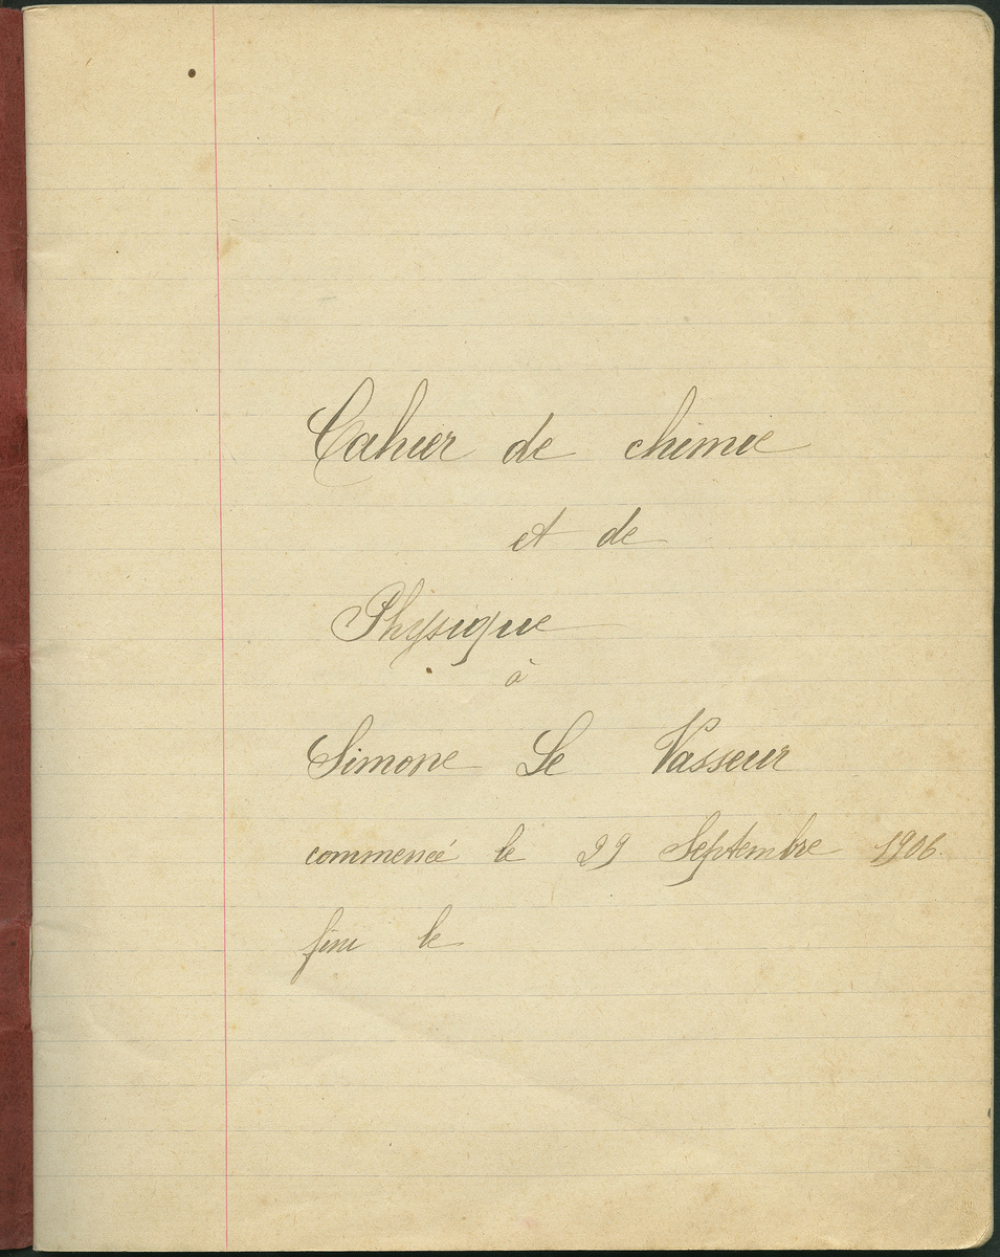 Cahier de chimie
et de
Physique
à
Simone Le Vasseur
commencé le 29 Septembre 1906.
fini le